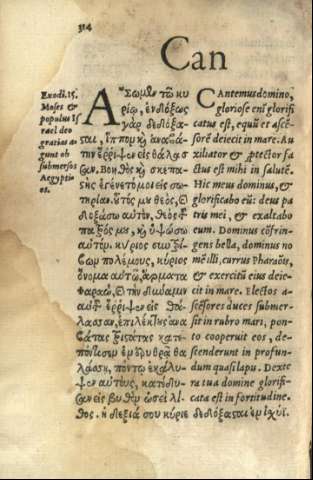 314
Can
Exodi. 15.
Moses &
populus Is
rael deo
gratias a-
gunt ob
submersos
Aegypti-
os.
ΑΣωμεν τῷ κυ
ρίῳ, ἐνδόξως
γὰρ δεδόξα-
σαι, ἵππον κỳ ἀναβά-
την ἔρριψεν εἰς θάλασ
σαν. Βοηθὸς κỳ σκεπα-
ςὴς ἐγένετό μοι εἰς σω-
τηρίαν. οὗτός μȣ θεὸς, ϗ
δοξάσω αὐτὸν. θεὸς τȣ͂
πατρός μȣ, κỳ ὑψώσω
αὐτόν. κύριος συντρί-
βων πολέμους, κύριος
ὄνομα αὐτῷ, ἅρματα
Φαραὼ, ϗ τὴν δύναμιν
αὐτȣ͂ ἔρριψεν εἰς θά-
λασσαν, ἐπιλέκτȣς ἀνα
βάτας τριστάτας κατε-
πόντισεν ἐν ἐρυθρᾷ θα
λάσσῃ, πόντῳ ἐκάλυ-
ψεν αὐτοὺς, κατέδυ-
σαν εἰς βυθὸν ὡσεὶ λί-
θος. ἡ δεξιά σου κύριε δεδόξασαι ἐν ἰσχύϊ.
CAntemus domino,
gloriose enĩ glorifi
catus est, equũ et ascẽ-
sorẽ deiecit in mare. Au
xiliator & ꝓtector fa
ctus est mihi in salutẽ.
Hic meus dominus, &
glorificabo eũ: deus pa
tris mei, & exaltabo
eum. Dominus cõfrin-
gens bella, dominus no
mẽ illi, currus Pharaõis,
& exercitũ eius deie-
cit in mare. Electos a-
scẽsores duces submer-
sit in rubro mari, pon-
to cooperuit eos, de-
scenderunt in profun-
dum quasi lapis. Dexte
ra tua domine glorifi-
cata est in fortitudine.